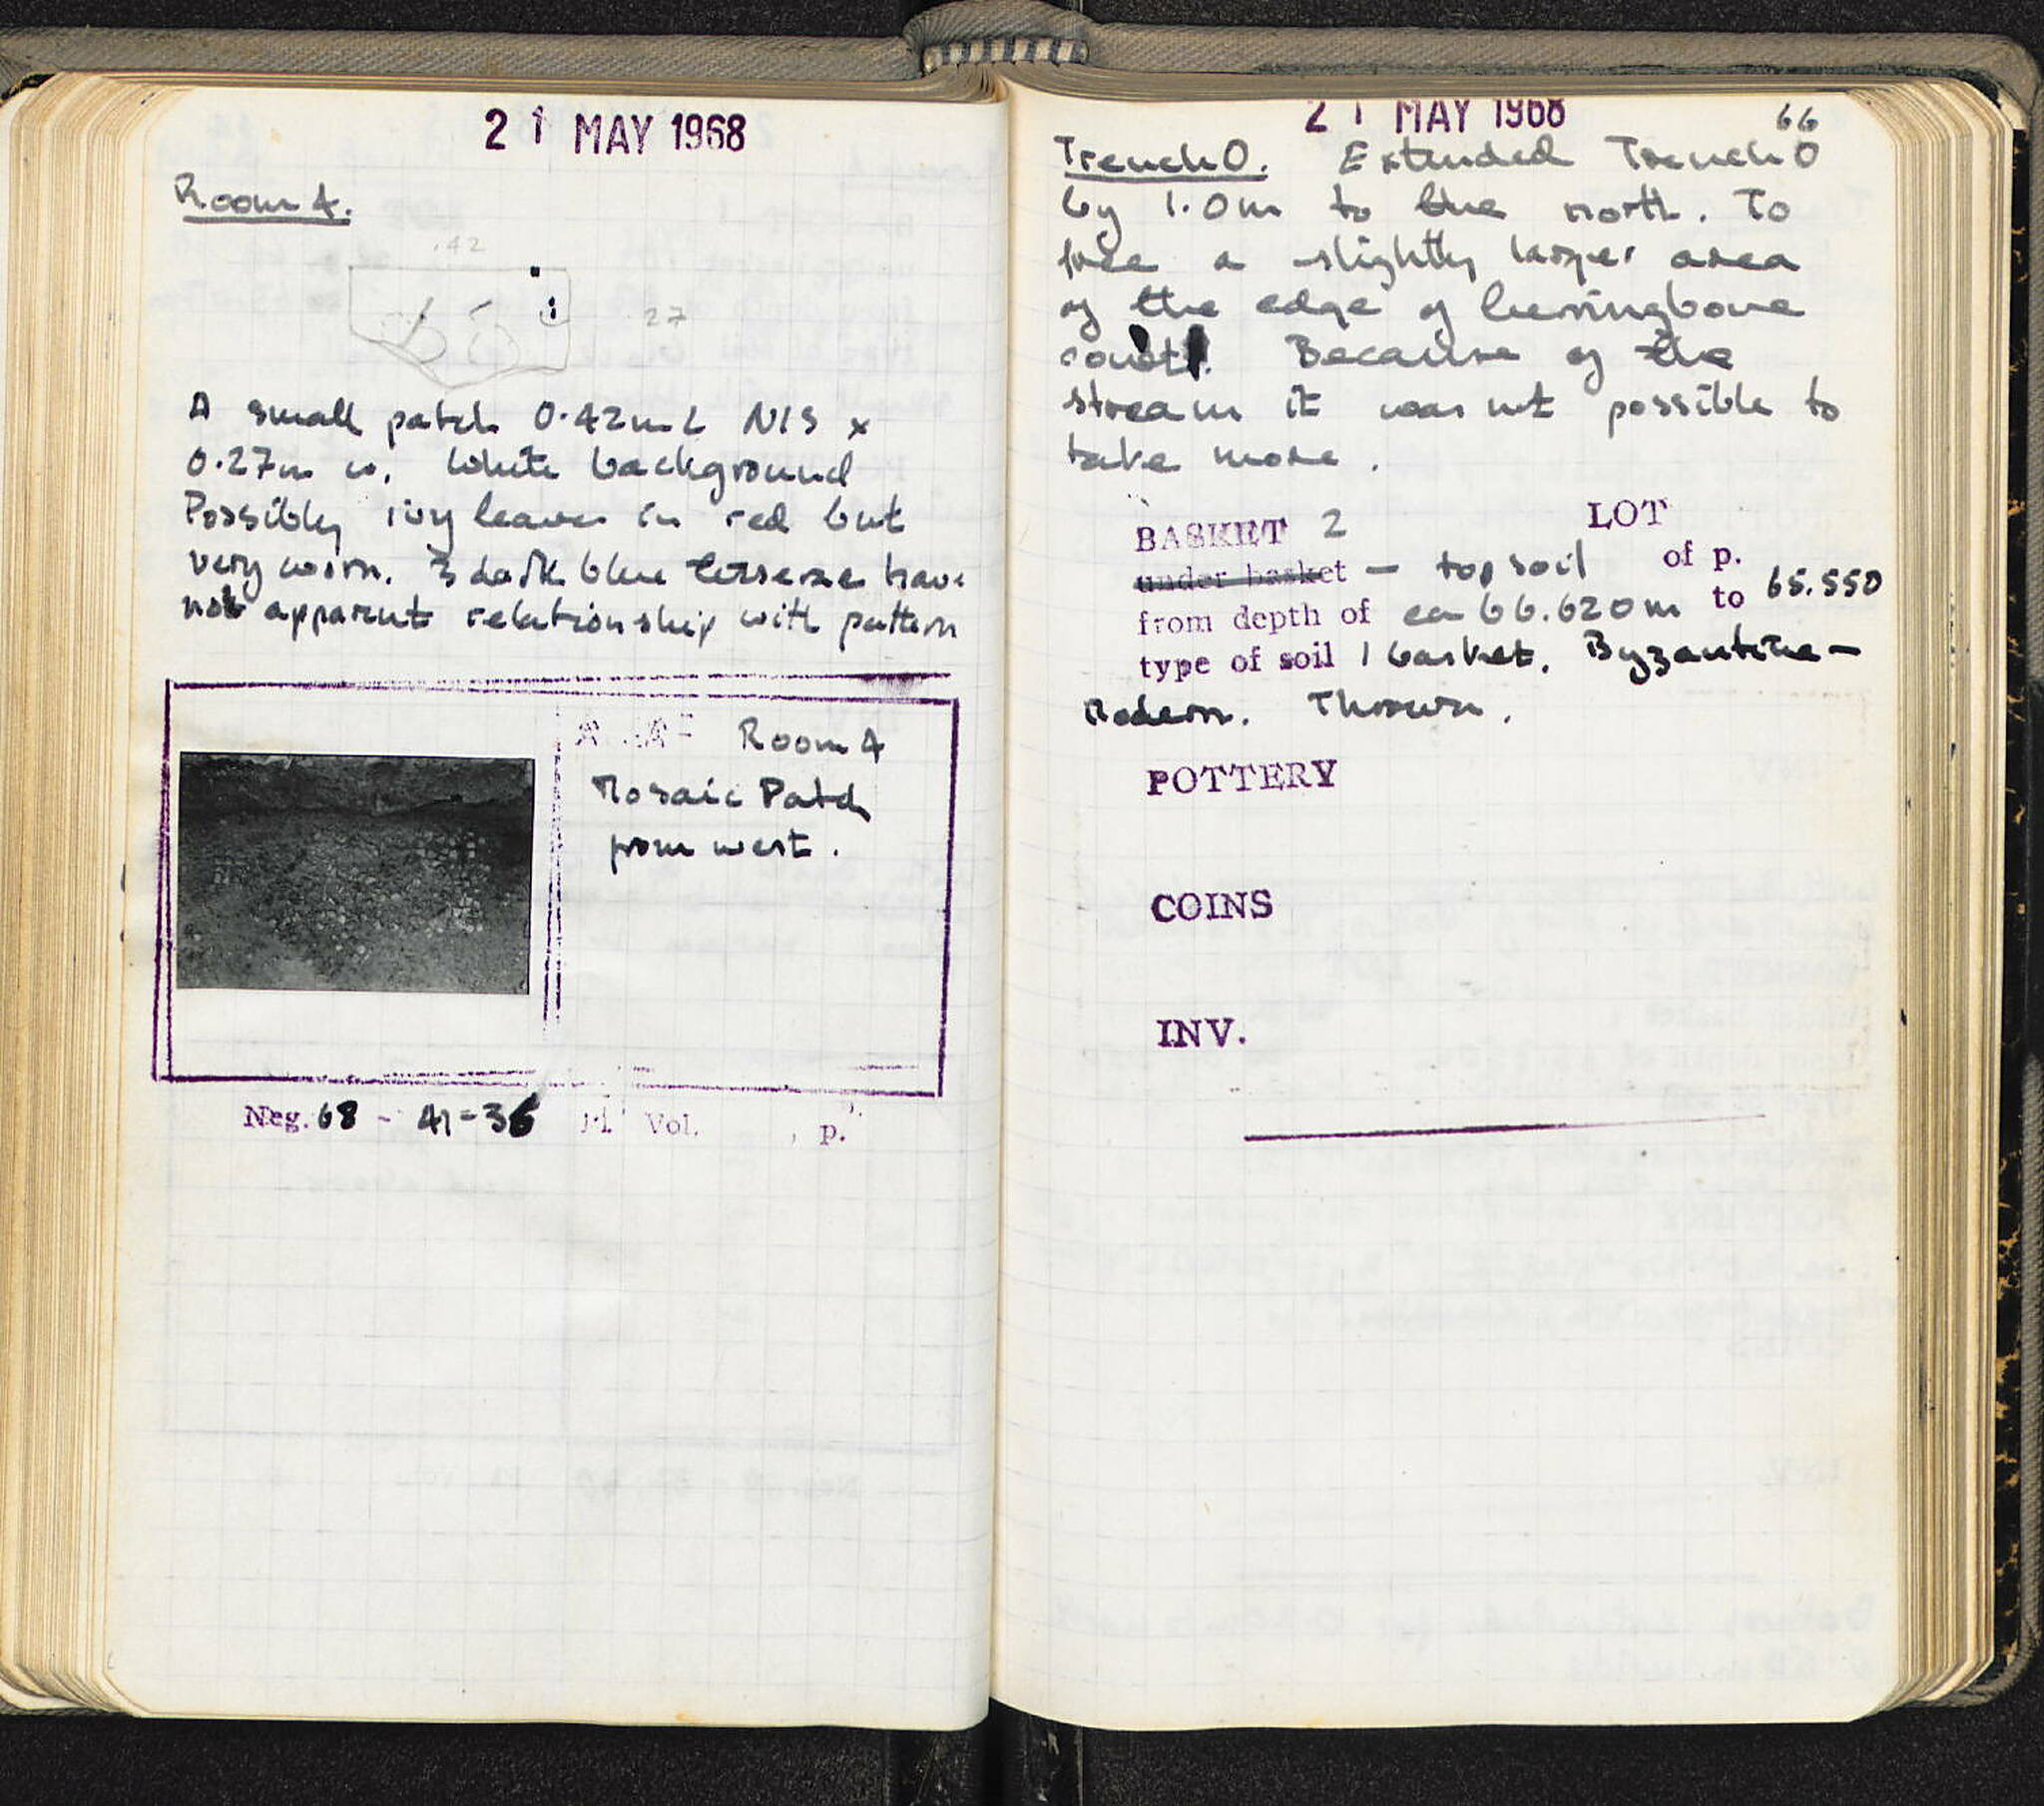 21 MAY 1968
Room 4.
.42
.27
A small patch 0.42m L N/S x
0.27m w. White background
Possibly ivy leaves in red but
very worn. 3 dark blue tesserae have
not apparent relationship with pattern
Room 4
Mosaic Patch
from west.
Neg. 68 - 41-36 Vol. , p.
21 MAY 1968
66
Trench O. Extended Trench O
by 1.0m to the north. To
free a slightly larger area
of the edge of herringbone
court. Because of the
stream it was not possible to
take more.
BASKET 2 LOT
under basket — topsoil of p.
from depth of ca 66.620m to 65.550
type of soil 1 basket. Byzantine —
Modern. Thrown.
POTTERY
COINS
INV.